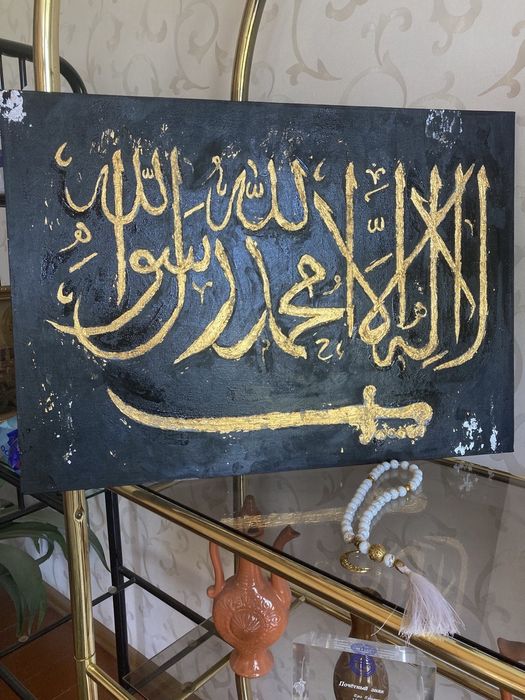 لا إله إلا الله محمد رسول الله
Почётный знак